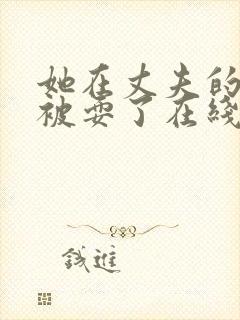 她在丈夫的
被耍了在綫
錢進